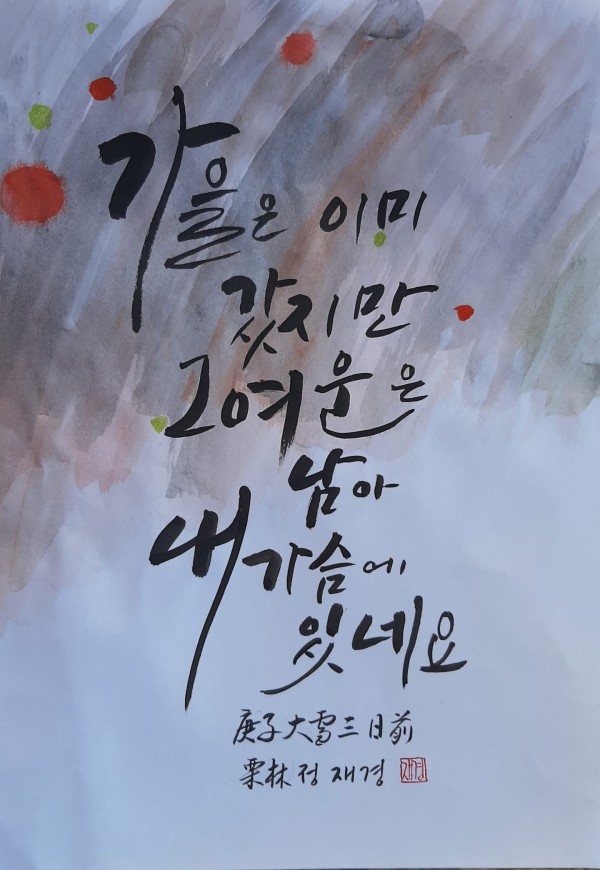 가을은 이미
갔지만
그여운은
남아
내가슴에
있네요
庚子大雪三日前
栗林정재경
재경